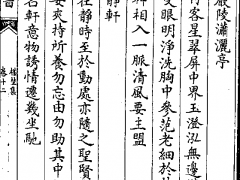 嚴陵瀟灑亭
有客星翠屏中界玉澄泓無邊
雙眼明淨洗胸中參范老細於
井相入一脈清風要主盟
靜軒
在靜時至於動處亦隨之聖賢
要夾持所養勿忘由勿助其中
名軒意物誘情遷幾坐馳